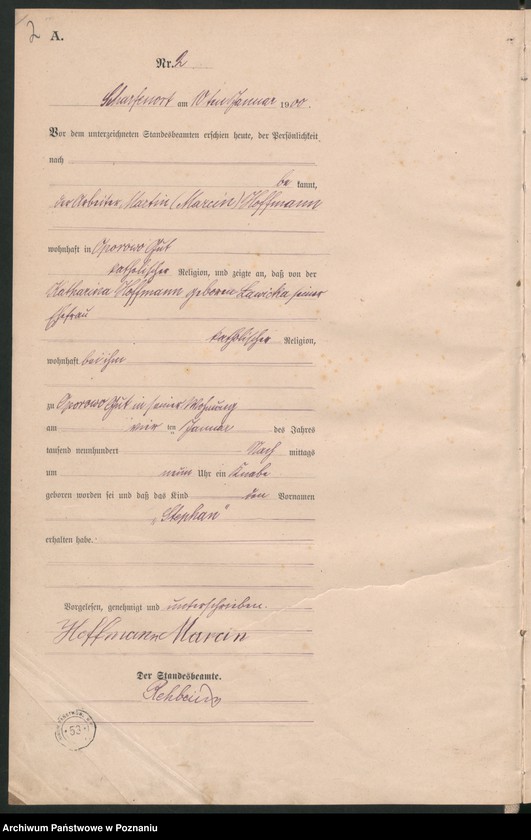 2
A.
Nr. 2
Scharfenort am 10ten Januar 1900.
Vor dem unterzeichneten Standesbeamten erschien heute, der Persönlichkeit
nach
be kannt,
der Arbeiter Martin (Marcin) Hoffmann
wohnhaft in Oporowo Gut
katholischer Religion, und zeigte an, daß von der
Katharina Hoffmann geboren Lawicka seiner
Ehefrau
katholischer Religion,
wohnhaft bei ihm
zu Oporowo Gut in seiner Wohnung
am vier ten Januar des Jahres
tausend neunhundert Nach mittags
um neun Uhr ein Knabe
geboren worden sei und daß das Kind den Vornamen
„Stephan“
erhalten habe.
Vorgelesen, genehmigt und unterschrieben.
Hoffmann Marcin
Der Standesbeamte.
53
Archiwum Państwowe w Poznaniu